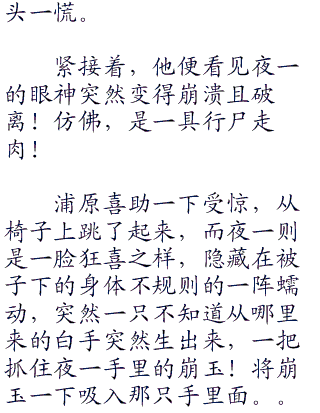 头一慌。
紧接着，他便看见夜一
的眼神突然变得崩溃且破
离！仿佛，是一具行尸走
肉！
浦原喜助一下受惊，从
椅子上跳了起来，而夜一则
是一脸狂喜之样，隐藏在被
子下的身体不规则的一阵蠕
动，突然一只不知道从哪里
来的白手突然生出来，一把
抓住夜一手里的崩玉！将崩
玉一下吸入那只手里面。。